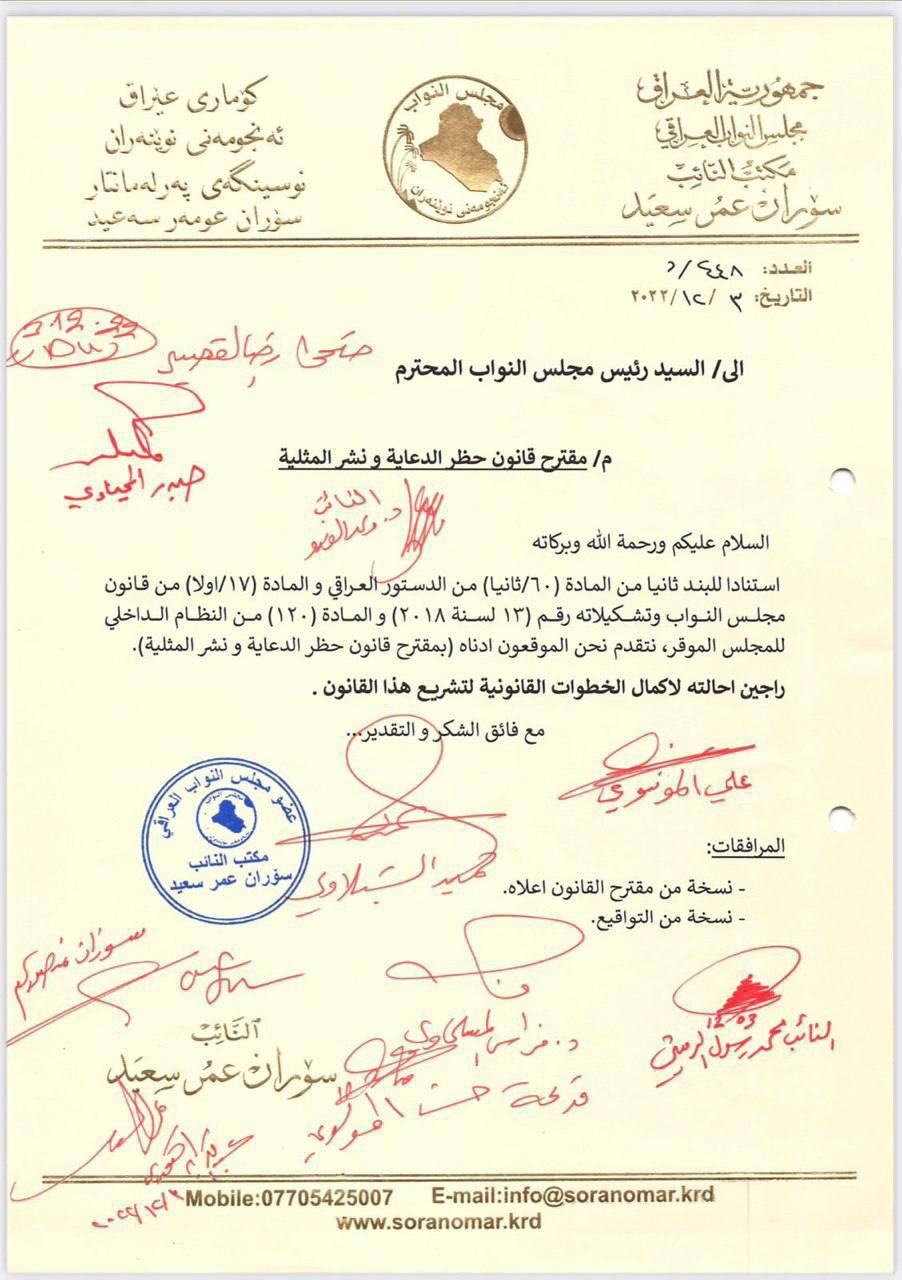 جمهورية العراق
مجلس النواب العراقي
مكتب النائب
سۆران عمر سعيد
كۆماری عێراق
ئه‌نجومه‌نی نوێنه‌ران
نوسینگه‌ی په‌رله‌مانتار
سۆران عومه‌ر سه‌عید
مجلس النواب
ئه‌نجومه‌نی نوێنه‌ران
العدد: ٤٤٨/د
التاريخ: ٣ /١٢/ ٢٠٢٢
الى/ السيد رئيس مجلس النواب المحترم
م/ مقترح قانون حظر الدعاية و نشر المثلية
حيدر
النائب
السلام عليكم ورحمة الله وبركاته
استنادا للبند ثانيا من المادة (٦٠/ثانيا) من الدستور العراقي و المادة (١٧/اولا) من قانون
مجلس النواب وتشكيلاته رقم (١٣ لسنة ٢٠١٨) و المادة (١٢٠) من النظام الداخلي
للمجلس الموقر، نتقدم نحن الموقعون ادناه (بمقترح قانون حظر الدعاية و نشر المثلية).
راجين احالته لاكمال الخطوات القانونية لتشريع هذا القانون .
مع فائق الشكر و التقدير...
علي الموسوي
عضو مجلس النواب العراقي
مكتب النائب
سۆران عمر سعيد
الشبلاوي
المرافقات:
- نسخة من مقترح القانون اعلاه.
- نسخة من التواقيع.
سوزان منصور
12/03
النائب محمد رسول الرميثي
د. فراس المسلماوي
النائب
سۆران عمر سعيد
حسن الموسوي
Mobile:07705425007 E-mail:info@soranomar.krd
www.soranomar.krd